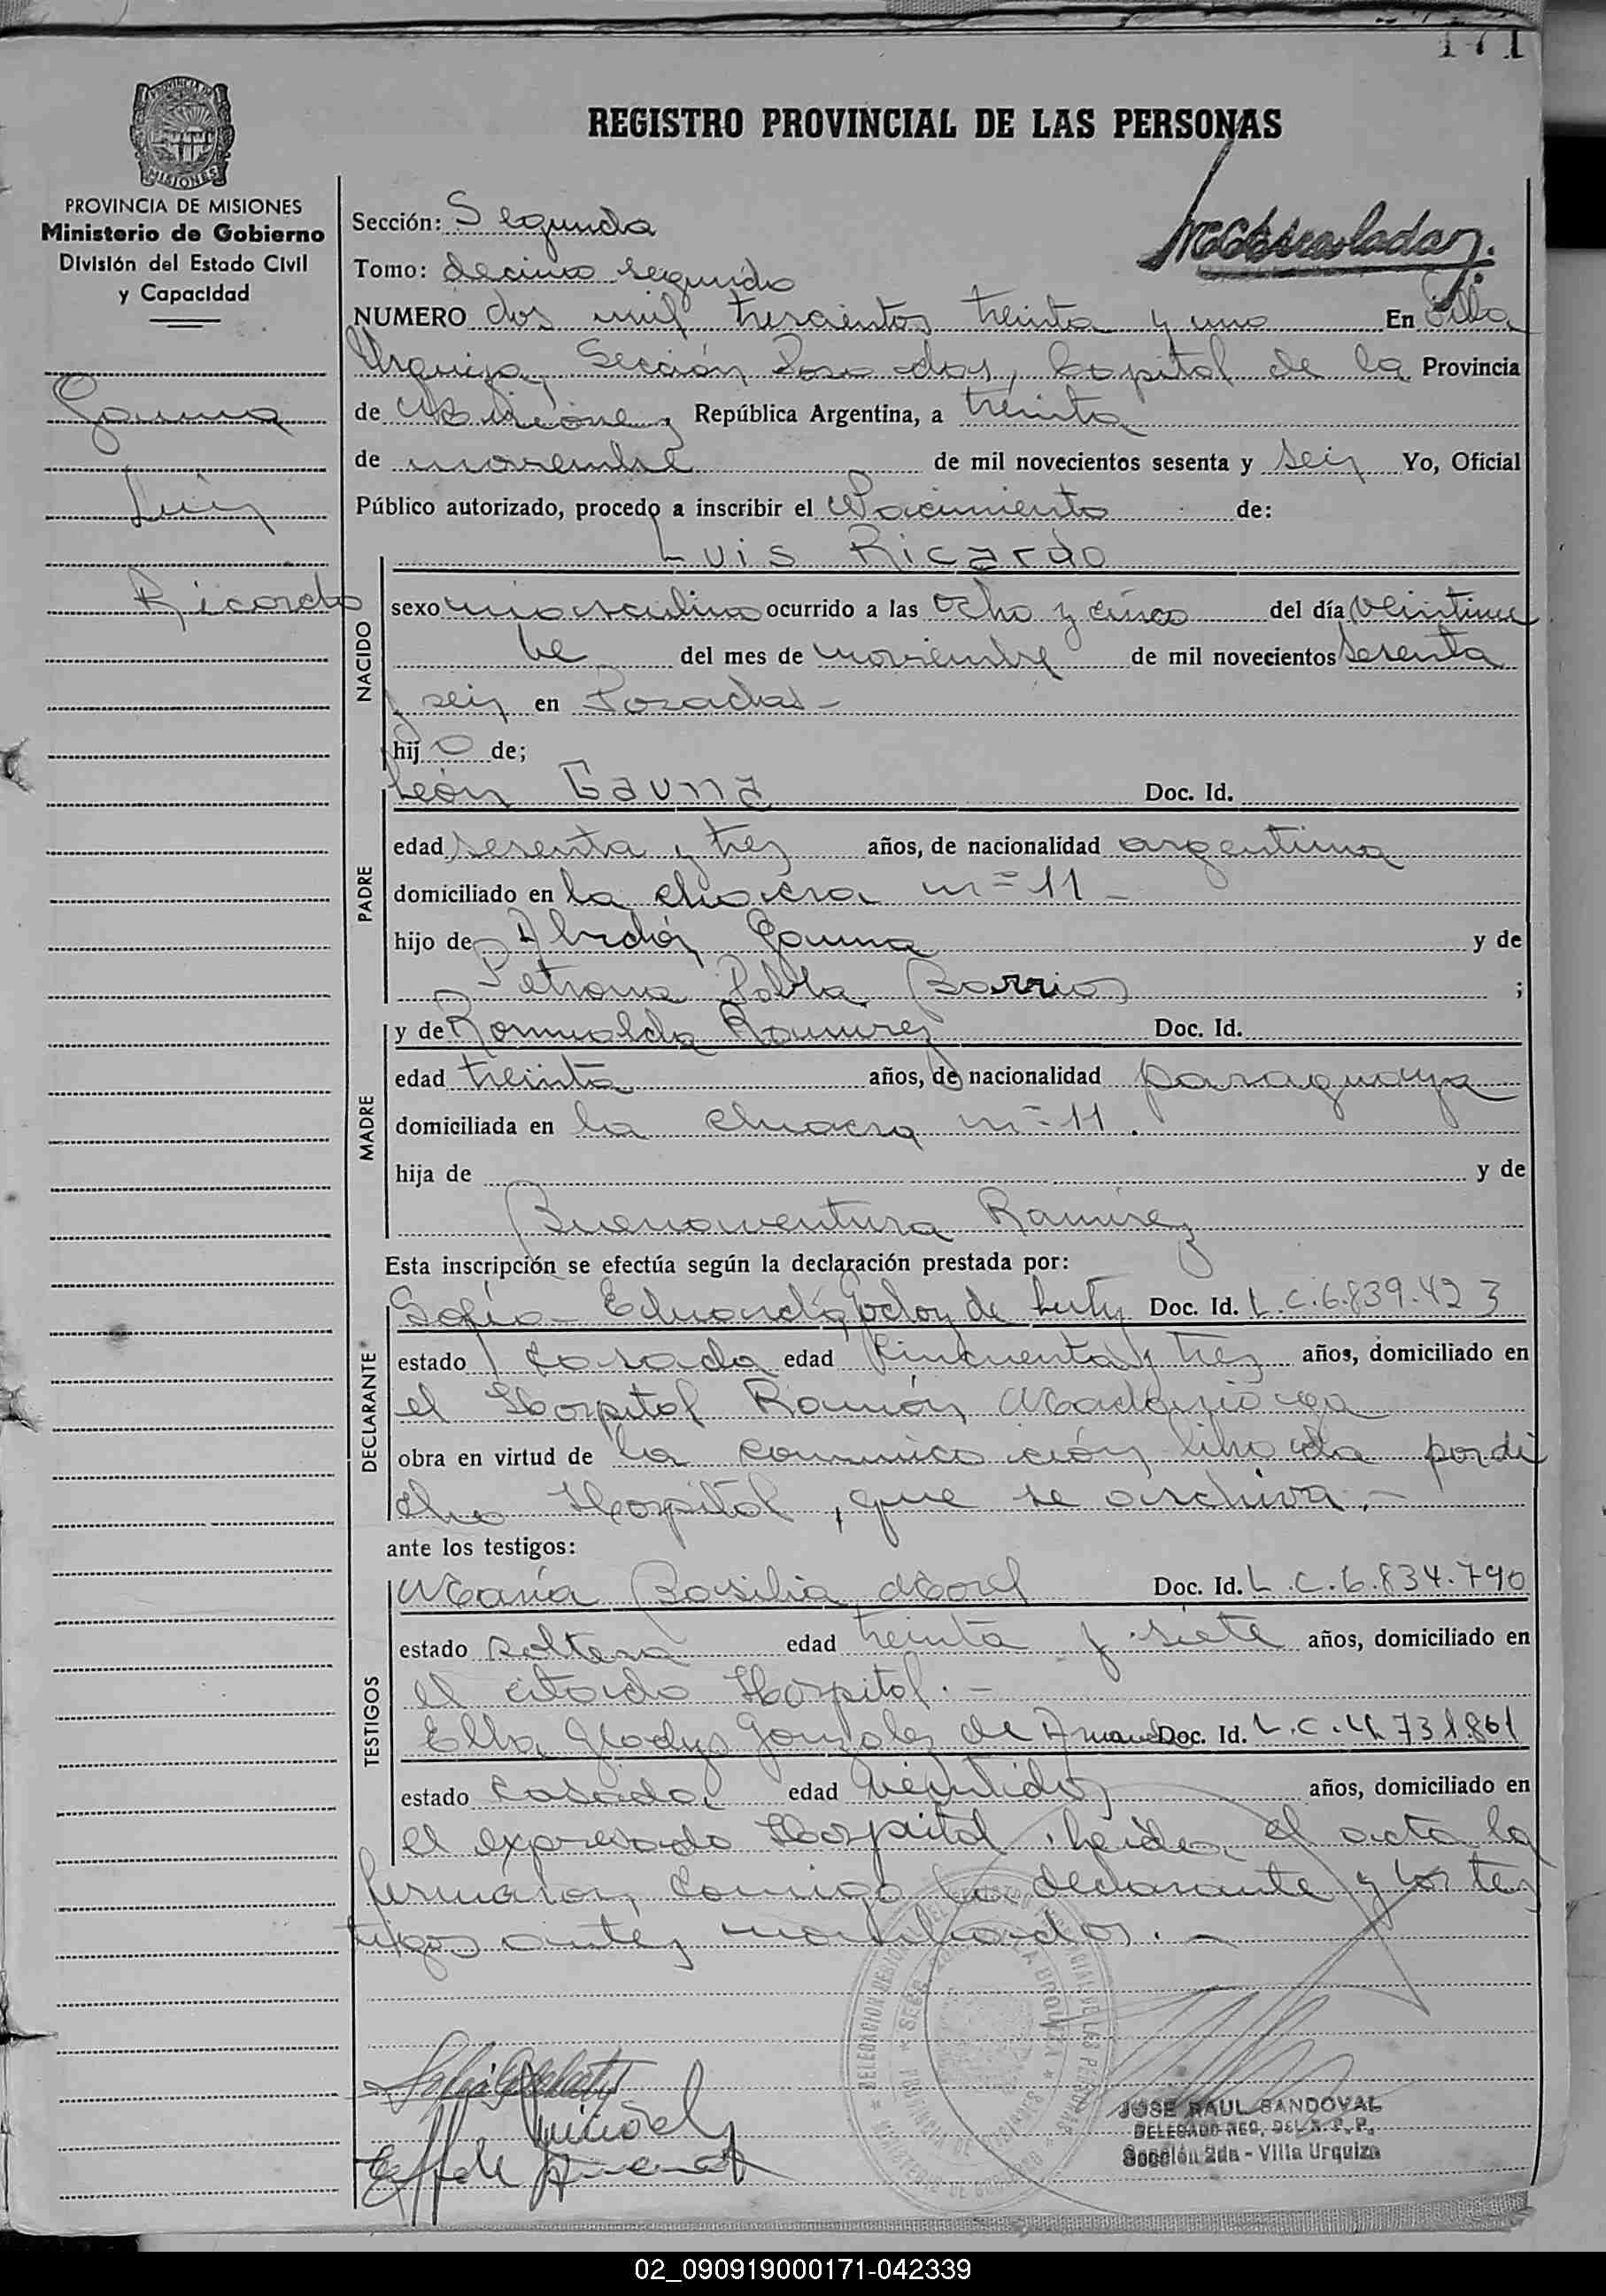 171
REGISTRO PROVINCIAL DE LAS PERSONAS
PROVINCIA DE MISIONES
Ministerio de Gobierno
División del Estado Civil
y Capacidad
Gauna
Luis
Ricardo
Sección: Segunda
Tomo: decimo segundo
NUMERO dos mil trescientos treinta y uno En Villa
Urquiza, Sección Posadas, Capital de la Provincia
de Misiones República Argentina, a treinta
de noviembre de mil novecientos sesenta y seis Yo, Oficial
Público autorizado, procedo a inscribir el Nacimiento de:
Luis Ricardo
NACIDO
sexo masculino ocurrido a las ocho y cinco del día veintinue
ve del mes de noviembre de mil novecientos sesenta
y seis en Posadas -
hijo de;
PADRE
León Gauna Doc. Id.
edad sesenta y tres años, de nacionalidad argentina
domiciliado en la chacra nº 11 -
hijo de Abdón Gauna y de
Petrona Pabla Barrios ;
MADRE
y de Romualda Ramirez Doc. Id.
edad treinta años, de nacionalidad paraguaya
domiciliada en la chacra nº 11.
hija de y de
Buenaventura Ramirez
Esta inscripción se efectúa según la declaración prestada por:
DECLARANTE
Sofía Eduarda Godoy de Luty Doc. Id. L.C.6.839.423
estado casada edad cincuenta y tres años, domiciliado en
el Hospital Ramón Madariaga
obra en virtud de la comunicación librada por di
cho Hospital, que se archiva.-
ante los testigos:
TESTIGOS
María Basilia Doc. Id. L.C.6.834.790
estado soltera edad treinta y siete años, domiciliado en
el citado Hospital.-
Elba Gladys Gonzalez de Doc. Id. L.C.4.731861
estado casada edad veintidos años, domiciliado en
el expresado Hospital. Leída el acta la
firmaron conmigo la declarante y los tes
tigos antes nombrados.-
JOSE RAUL SANDOVAL
DELEGADO REG. DEL R. P. P.
Sección 2da - Villa Urquiza
02_090919000171-042339